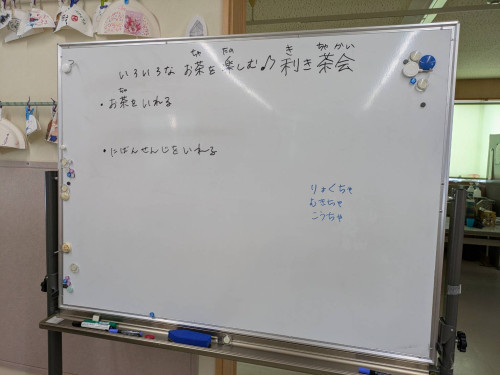 いろいろな お茶を楽しむ♪ 利き茶会
ちゃ たの き ちゃかい
・お茶をいれる
ちゃ
・にばんせんじをいれる
りょくちゃ
むぎちゃ
こうちゃ